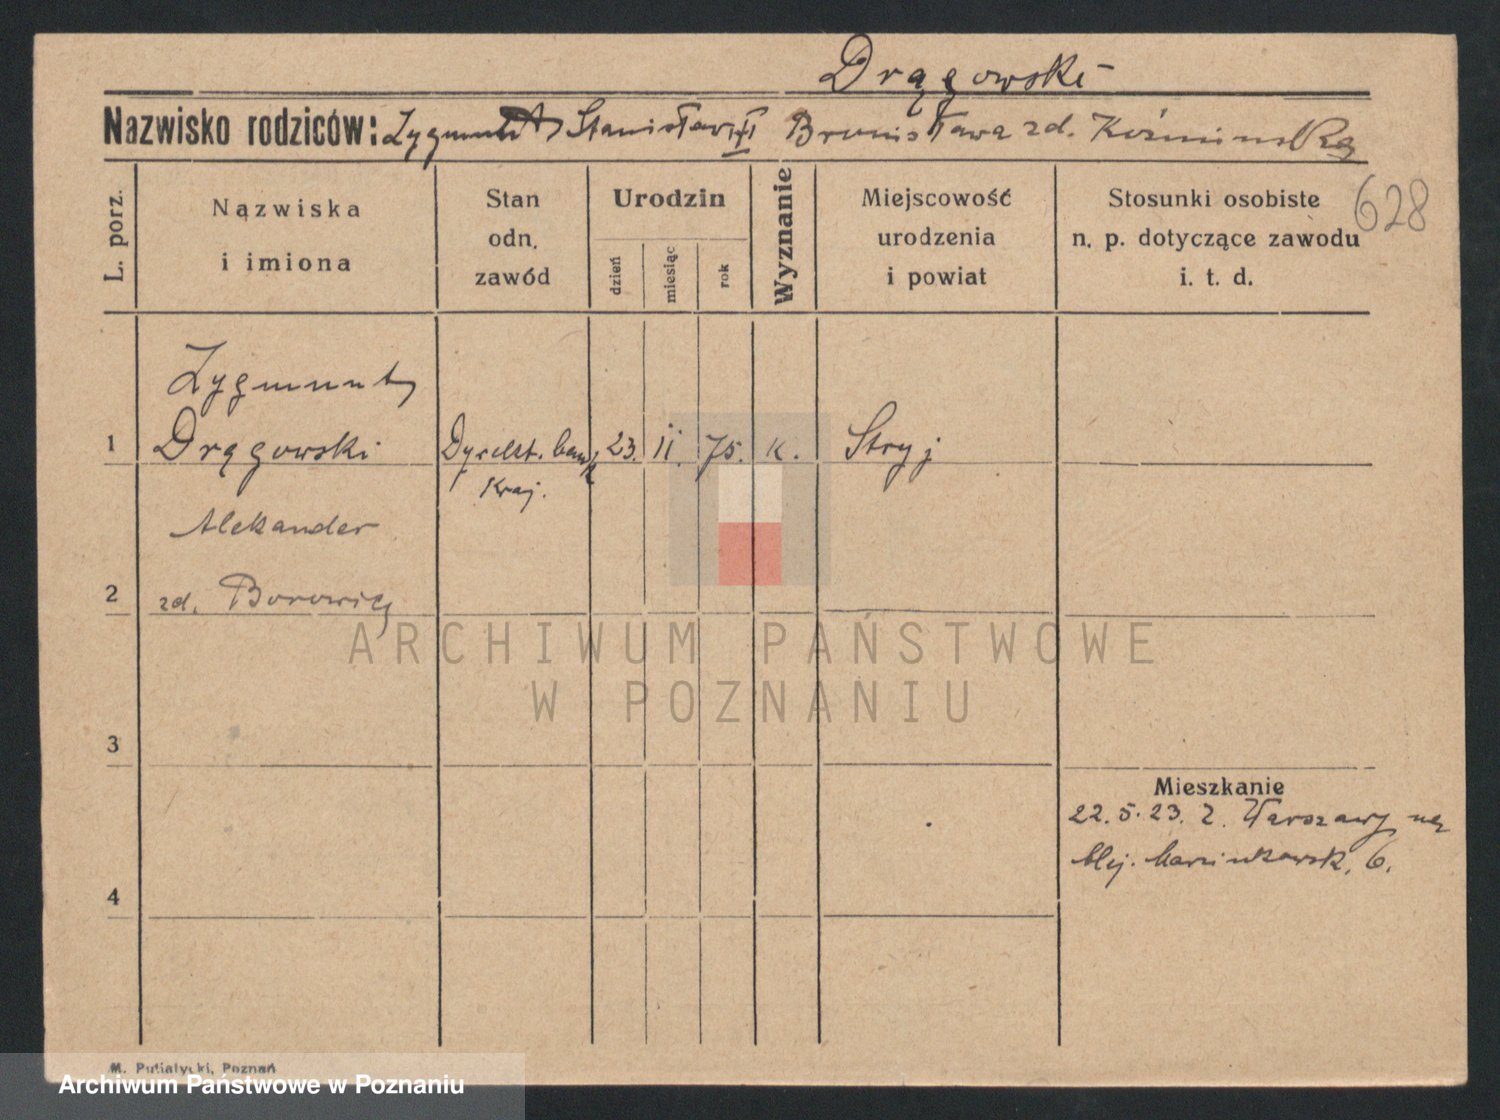 Drągowski
Nazwisko rodziców: Zygmunt Stanisław Bronisława zd. Koźmińska
628
L. porz.
Nązwiska
i imiona
Stan
odn.
zawód
Urodzin
dzień
miesiąc
rok
Wyznanie
Miejscowość
urodzenia
i powiat
Stosunki osobiste
n. p. dotyczące zawodu
i. t. d.
Zygmunt
1 Drągowski Dyrekt. bank 23. II. 75. K. Stryj
Kraj.
Alekander
2 zd. Borowicz
3
Mieszkanie
22. 5. 23. Z. Warszawy na
Alej. Marcinkowsk. 6.
4
M. Putiatycki, Poznań
ARCHIWUM PAŃSTWOWE
W POZNANIU
Archiwum Państwowe w Poznaniu